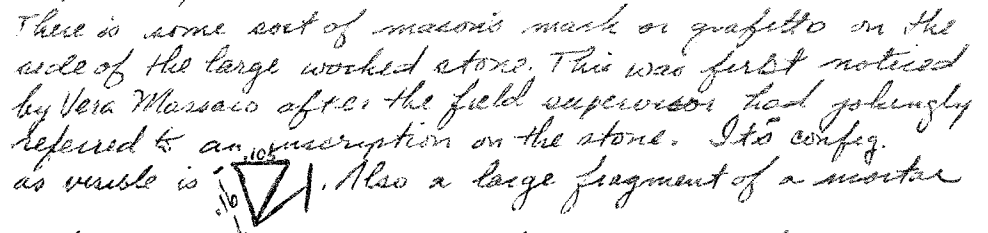 There is some sort of mason's mark or grafetto on the
side of the large worked stone. This was first noticed
by Vera Massaro after the field supervisor had jokingly
referred to an inscription on the stone. Its config.
as visible is .105 .16 . Also a large fragment of a mortar